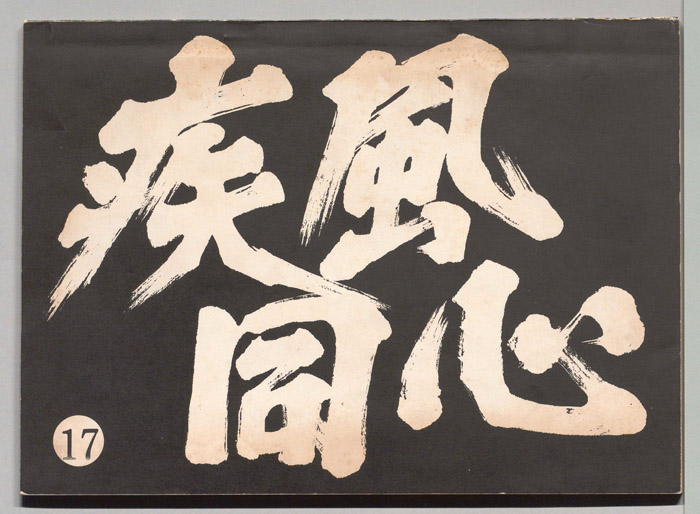 疾風
同心
17